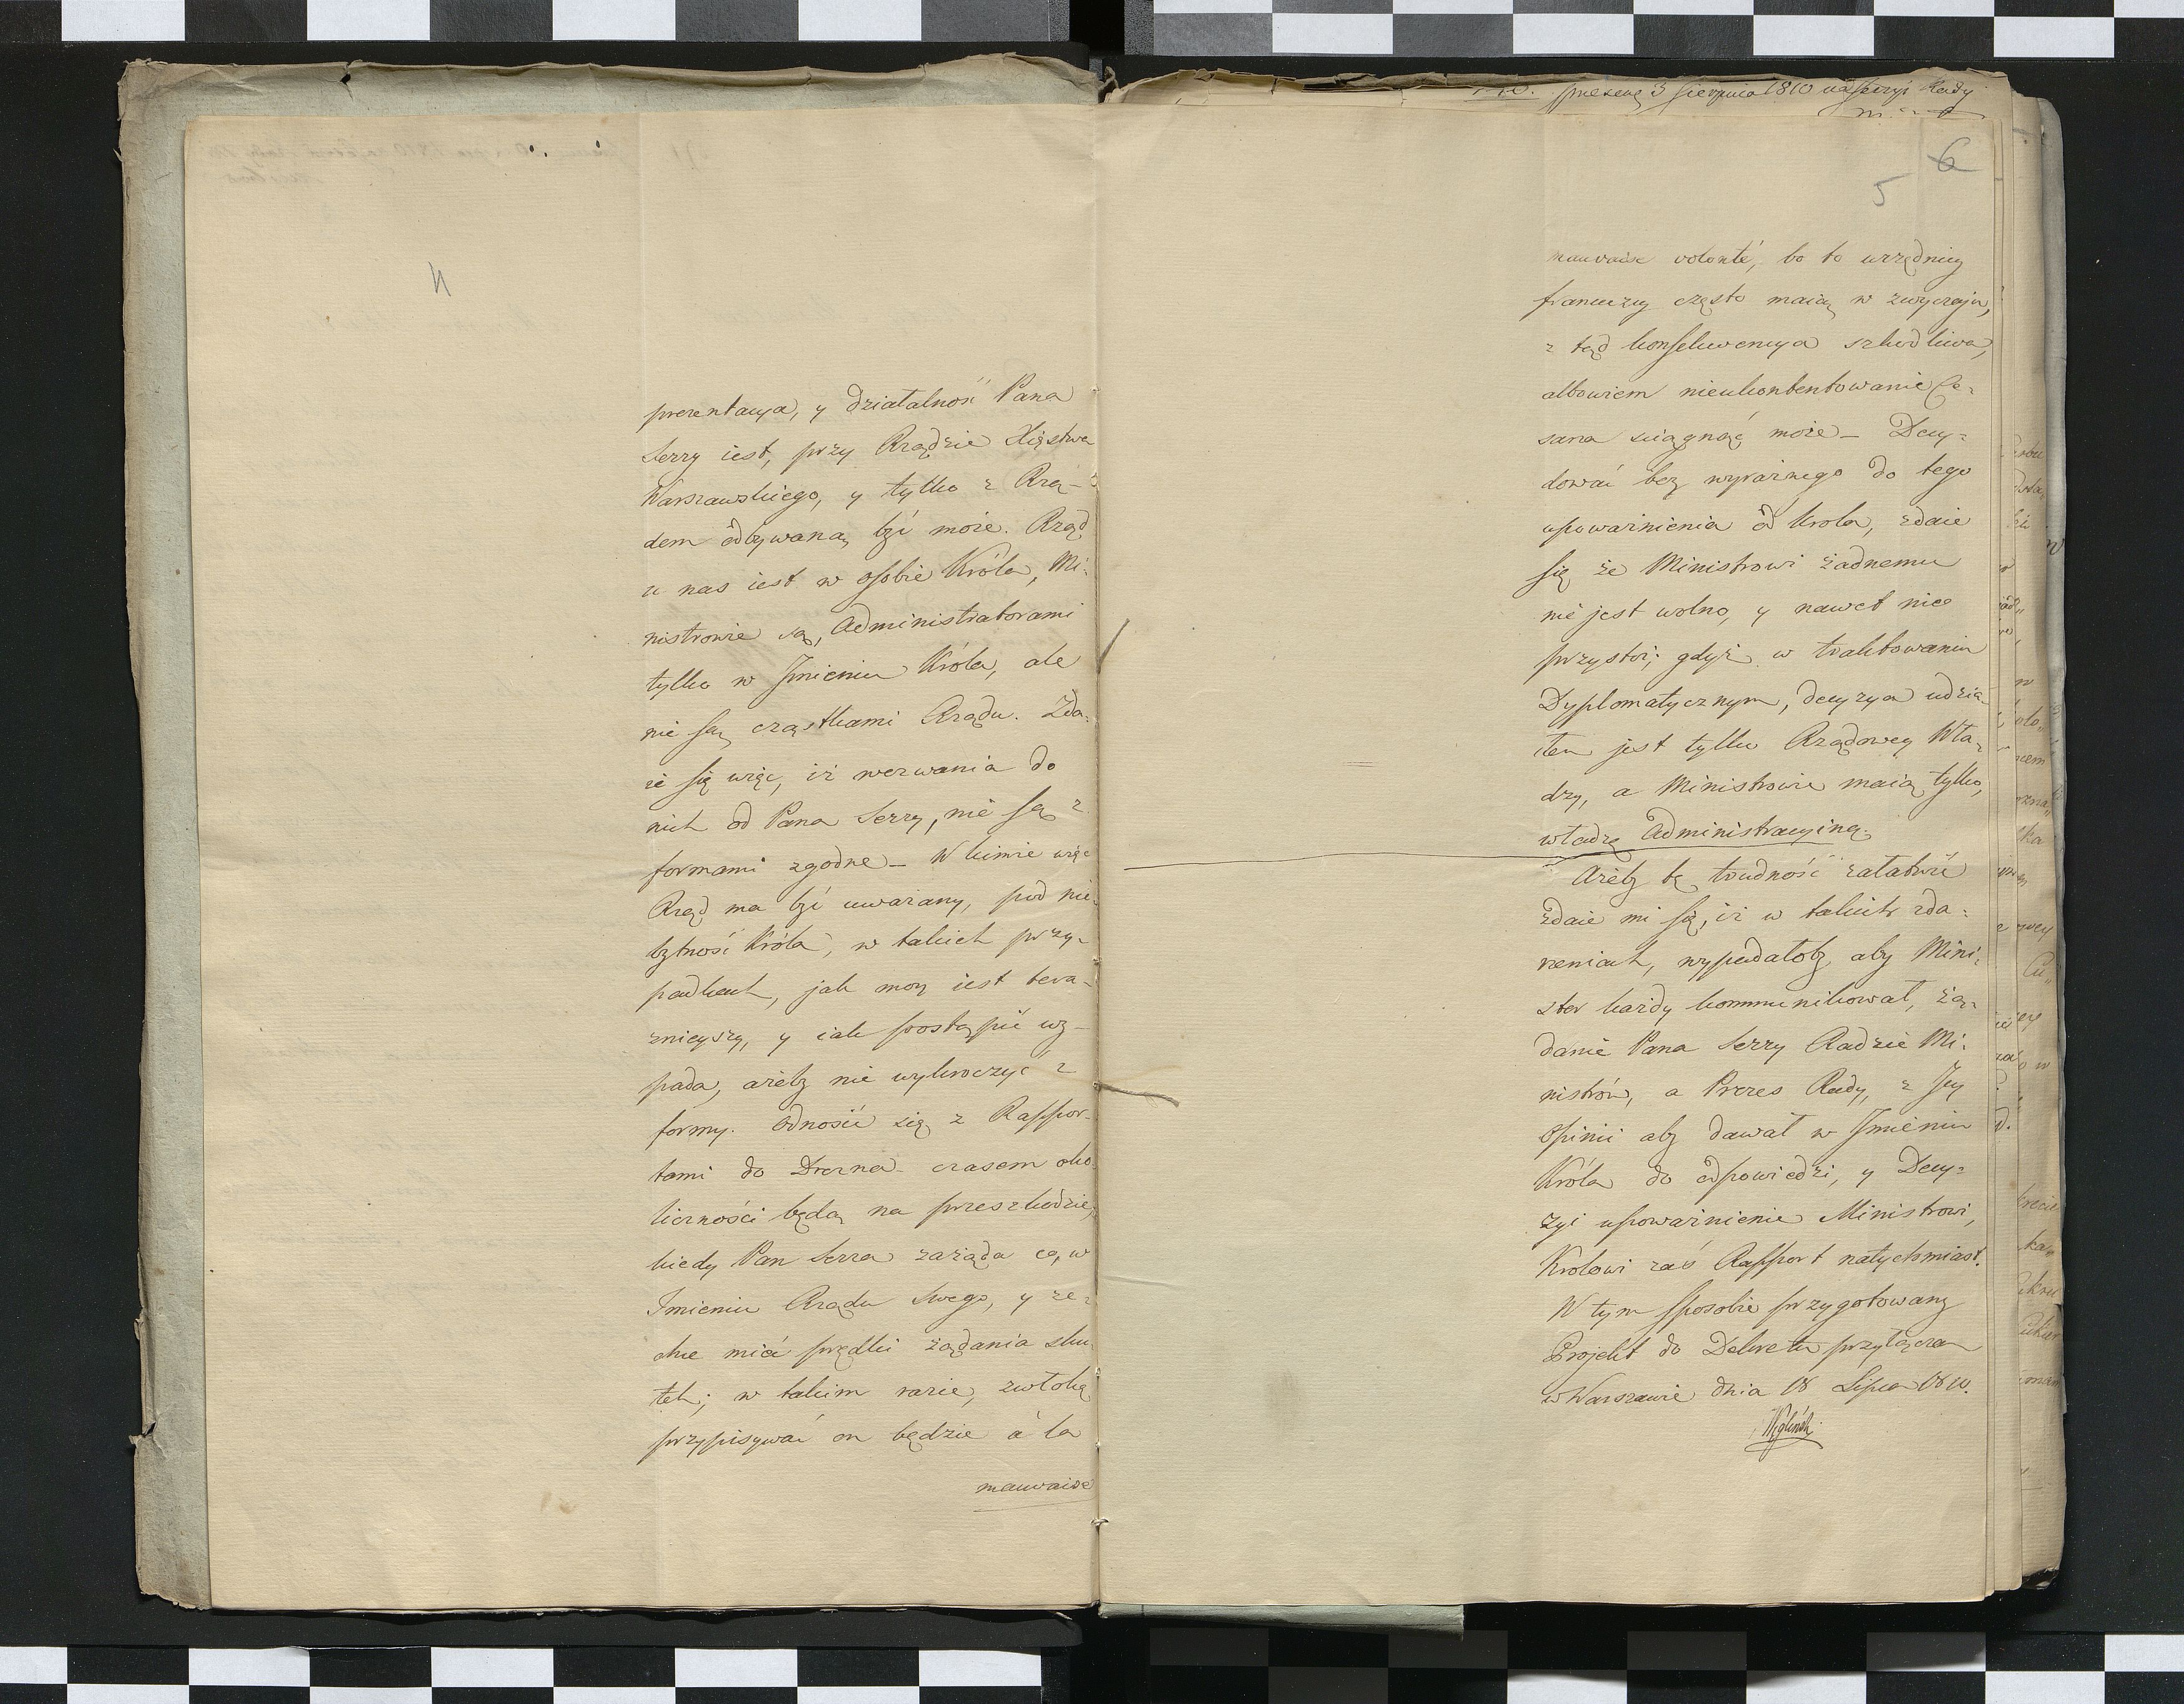 4
prezentacya, y działalność Pana
Serry iest, przy Rządzie Xięstwa
Warszawskiego, y tylko z Rzą-
dem odbywaną być może. Rząd
u nas iest w osobie Króla, Mi-
nistrowie są, Administratorami
tylko w Jmieniu Króla, ale
nie są cząstkami Rządu. Zda-
ie się więc, iż wezwania do
nich od Pana Serry, nie są z
formami zgodne – W kimże więc
Rząd ma być uważany, pod nie-
bytność Króla, w takich przy-
padkach, jak moy iest tera-
znieyszy, y iak postąpić wy-
pada, ażeby nie wykroczyć z
formy. Odnosić się z Rappor-
tami do Drezna – czasem oko-
liczności będą na przeszkodzie,
kiedy Pan Serra zażąda co, w
Jmieniu Rządu Swego, y ze-
chce mieć prędki żądania sku-
tek; w takim razie, zwłokę
przypisywać on będzie à la
mauvaise
prezen. 3 Sierpnia 1810 na Sessyi Rady
6
5
mauvaise volonté, bo to urzędnicy
francuzcy często maią w zwyczaju,
z tąd konsekwencya szkodliwa,
albowiem nieukontentowanie Ce-
sarza sciągnąć może – Decy-
dować bez wyraźnego do tego
upoważnienia od Krola, zdaie
się że Ministrowi żadnemu
nie jest wolno, y nawet nie
przystoi; gdyż w traktowaniu
Dyplomatycznym, decyzya udzia-
łem jest tylko Rządowey Wła-
dzy, a Ministrowie maią tylko,
władzę Administracyiną.
Ażeby tę trudność załatwić
zdaie mi się, iż w takich zda-
rzeniach, wypadałoby aby Mini-
ster każdy kommunikował, żą-
danie Pana Serry Radzie Mi-
nistrów, a Prezes Rady, z Jey
Opinii aby dawał w Jmieniu
Króla do odpowiedzi, y Decy-
zyi upoważnienie Ministrowi,
Krolowi zaś Rapport natychmiast.
W tym sposobie przygotowany
Projekt do Dekretu przyłączam
w Warszawie dnia 18 Lipca 1810.
Węgleński